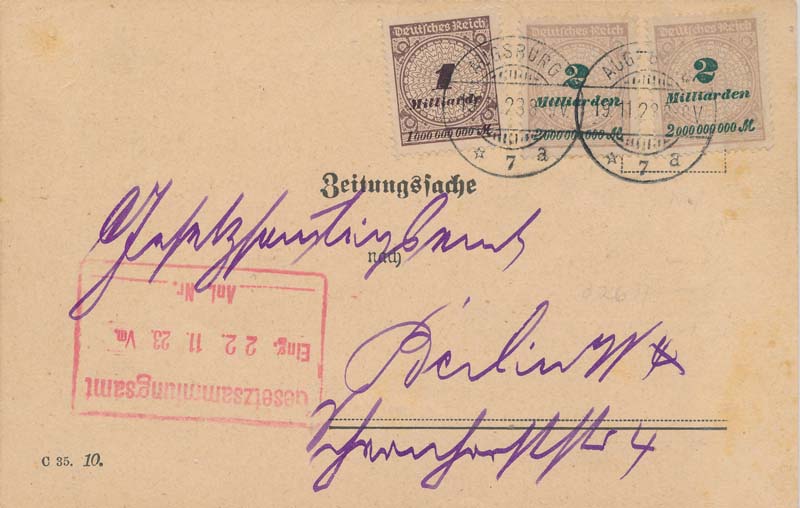 Deutsches Reich
1
Milliarde
1 000 000 000 M
Deutsches Reich
2
Milliarden
2 000 000 000 M
Deutsches Reich
2
Milliarden
2 000 000 000 M
AUGSBURG
23
7 a
AUGSBURG
19.11.23
V
7 a
Zeitungssache
Gesetzsamlungsamt
nach
Berlin W
Scharnhorststr 4
Gesetzsammlungsamt
Eing. 22. 11. 23. Vm.
Anl. Nr.
C 35. 10.